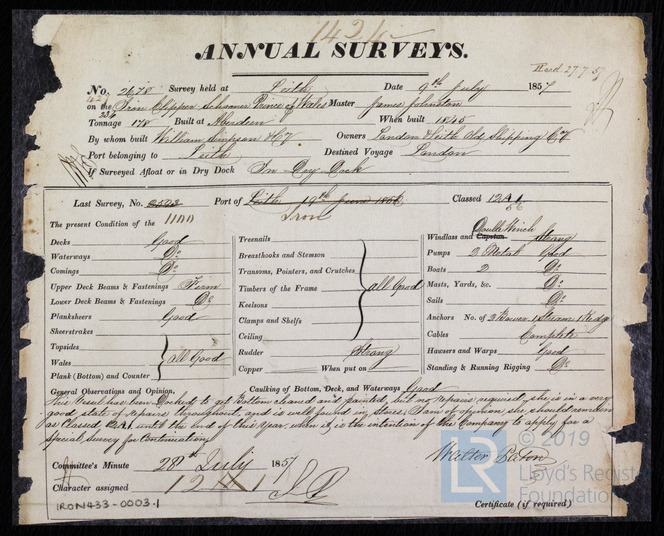 ANNUAL SURVEYS.
Recd. 27.7.57
No. 2678 Survey held at Leith Date 9th July 1857
on the Iron Clipper Schooner Prince of Wales Master James Johnston
Tonnage 236 178 Built at Aberdeen When built 1845
By whom built William Simpson & Co Owners London & Leith Old Shipping Co
Port belonging to Leith Destined Voyage London
If Surveyed Afloat or in Dry Dock In Dry Dock
Last Survey, No. Port of Leith 19th June 1856 Classed 12 A 1
Iron 56
The present Condition of the
Decks Good
Waterways Do
Comings Do
Upper Deck Beams & Fastenings Firm
Lower Deck Beams & Fastenings Do
Planksheers Good
Sheerstrakes
Topsides
Wales all Good
Plank (Bottom) and Counter
Treenails
Breasthooks and Stemson
Transoms, Pointers, and Crutches
Timbers of the Frame all Good
Keelsons
Clamps and Shelfs
Ceiling
Rudder Strong
Copper When put on
Double Winch
Windlass and Capstan Strong
Pumps 2 Metal Good
Boats 2 Do
Masts, Yards, &c. Do
Sails Do
Anchors No. of 3 Bower 1 Stream 1 Kedge
Cables Complete
Hawsers and Warps Good
Standing & Running Rigging Do
General Observations and Opinion, Caulking of Bottom, Deck, and Waterways Good
This Vessel has been Docked to get Bottom cleaned and painted, but no repairs required, she is in a very
good state of repairs throughout, and is well found in stores. I am of opinion she should remain
as Classed 12 A 1 until the end of this Year, when it is the intention of the Company to apply for a
Special Survey for Continuation
Walter Paton
Committee's Minute 28th July 1857
Character assigned 12 A 1
IRON433-0003-1
Certificate (if required)
© 2019
LR
Lloyd's Register
Foundation